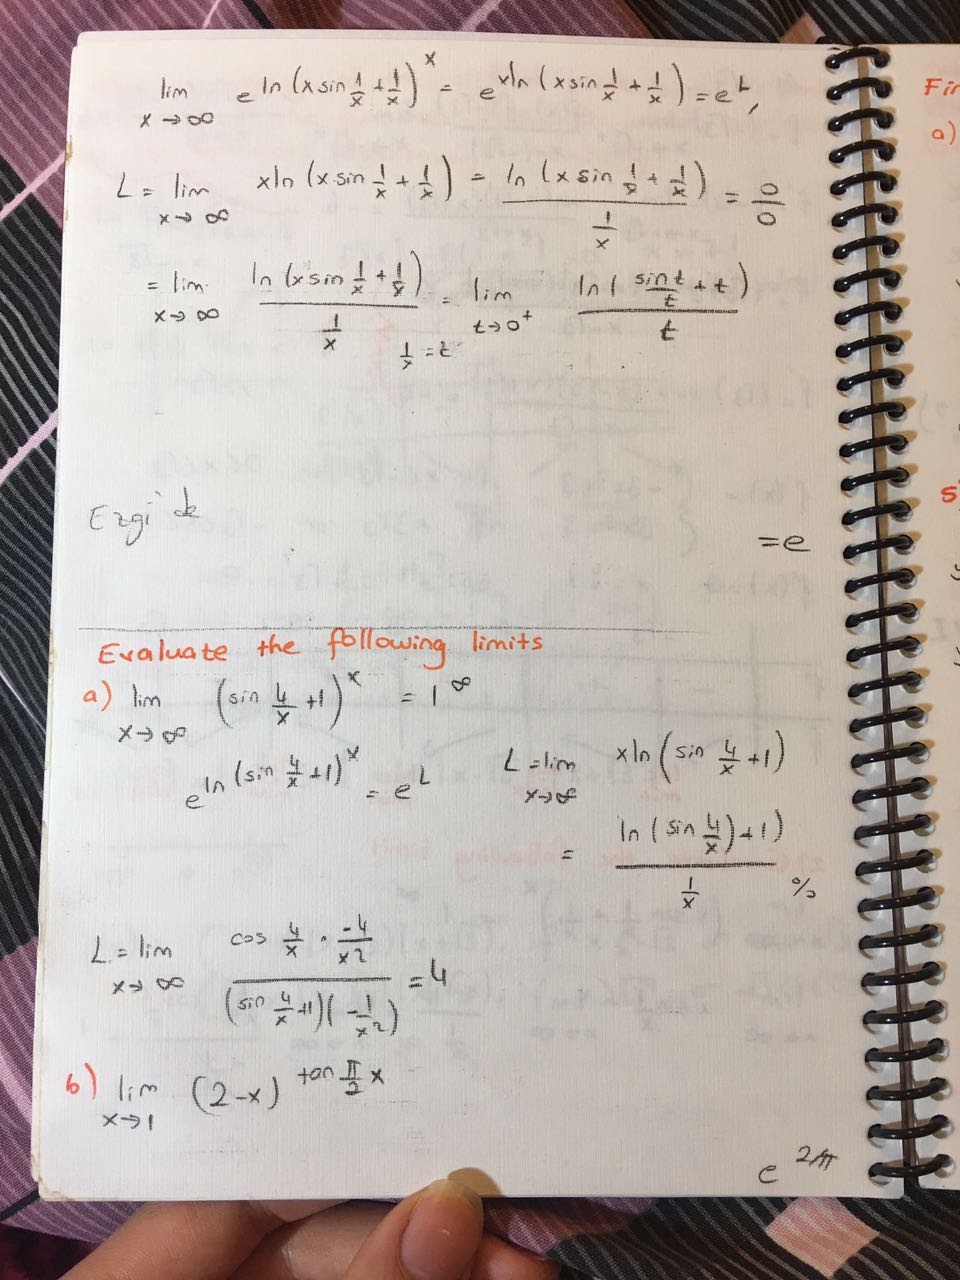 lim x→∞ e^ln(x sin 1/x + 1/x)^x = e^xln(x sin 1/x + 1/x) = e^L,
L = lim x→∞ xln(x.sin 1/x + 1/x) = ln(x sin 1/x + 1/x) / 1/x = 0/0
= lim x→∞ ln(x sin 1/x + 1/x) / 1/x = lim t→0⁺ ln(sint/t + t) / t
1/x = t
= e
Evaluate the following limits
a) lim x→∞ (sin 4/x + 1)^x = 1^∞
e^ln(sin 4/x + 1)^x = e^L L = lim x→∞ xln(sin 4/x + 1)
= ln(sin 4/x) + 1) / 1/x %
L = lim x→∞ cos 4/x · -4/x² / (sin 4/x + 1)(-1/x²) = 4
b) lim x→1 (2-x)^tan π/2 x
Fin
a)